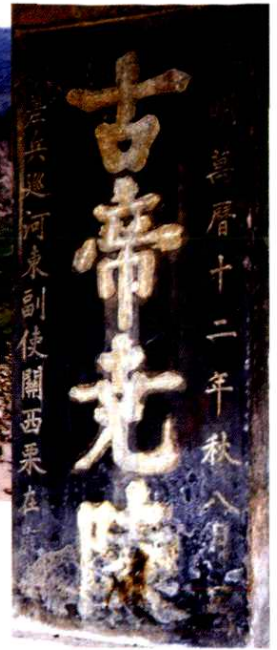 明萬曆十二年秋八月
古帝尭陵
兵巡河東副使關西栗在